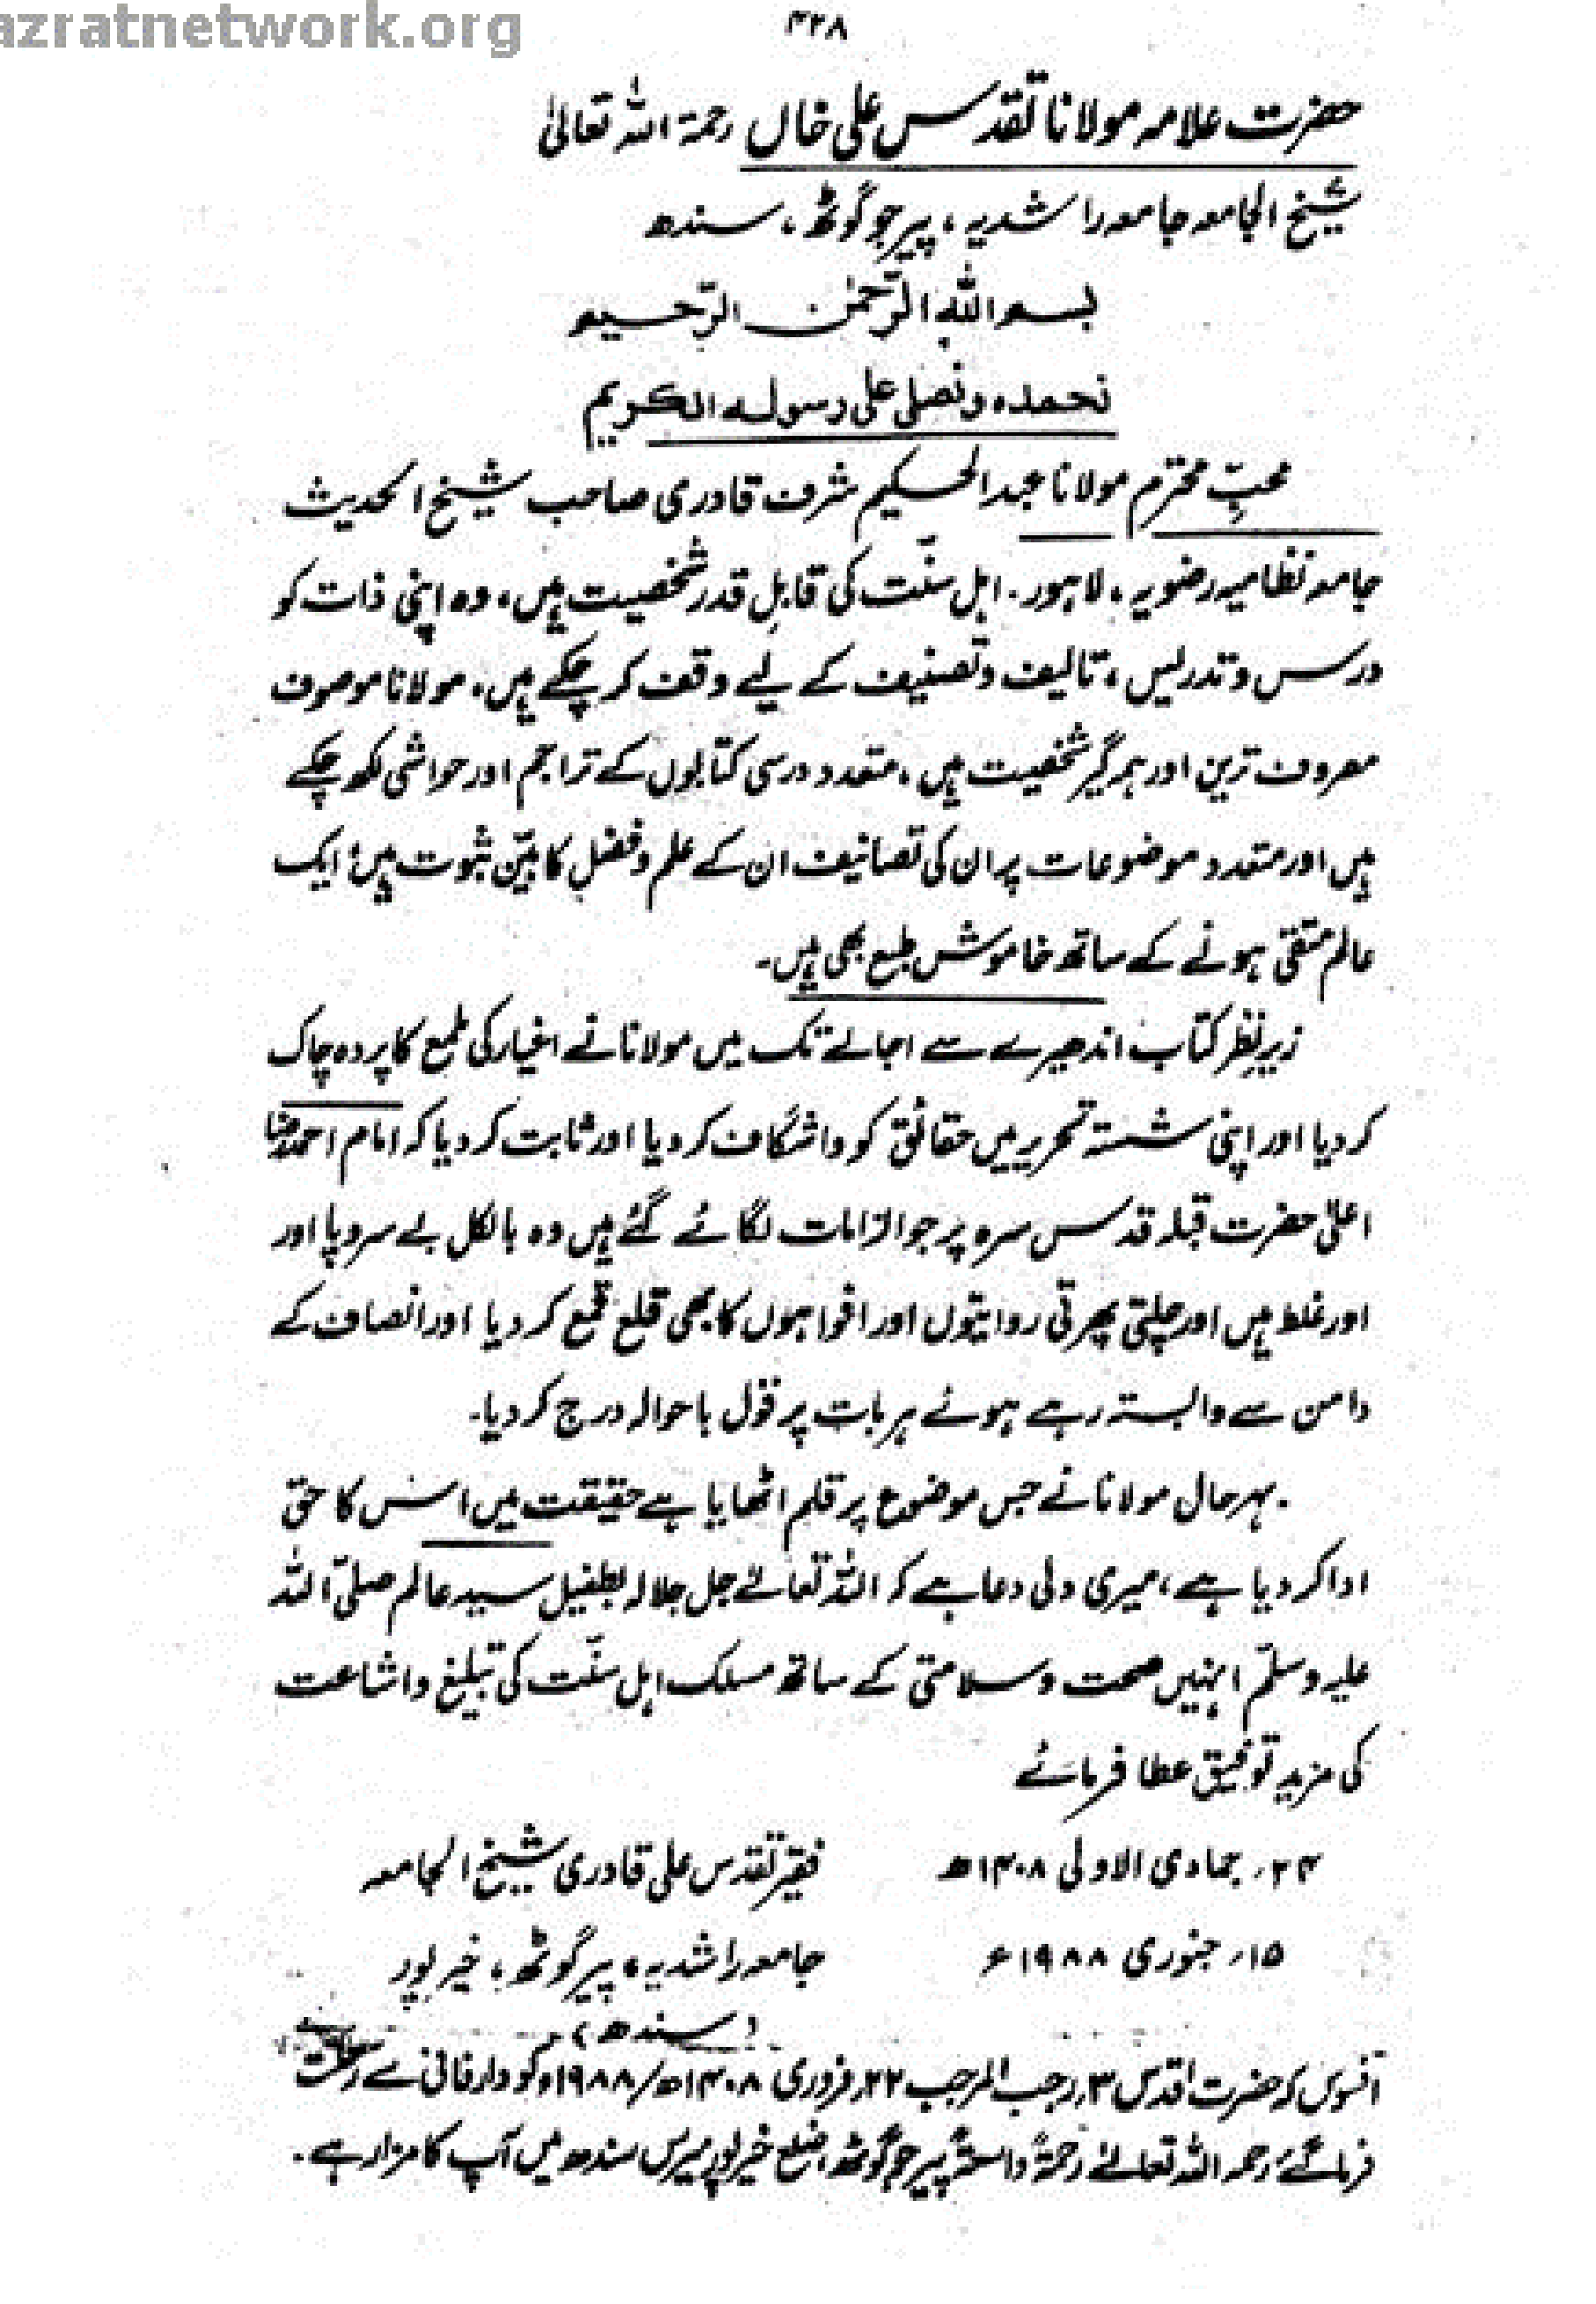 azratnetwork.org
۴۲۸
حضرت علامہ مولانا تقدس علی خاں رحمۃ اللہ تعالیٰ
شیخ الجامعہ جامعہ راشدیہ، پیر جو گوٹھ، سندھ
بسم اللہ الرّحمٰن الرّحیم
نحمدہ ونصلی علی رسولہ الکریم
محبِّ محترم مولانا عبدالحکیم شرف قادری صاحب شیخ الحدیث
جامعہ نظامیہ رضویہ، لاہور۔ اہل سنّت کی قابلِ قدر شخصیت ہیں، وہ اپنی ذات کو
درس و تدریس، تالیف و تصنیف کے لیے وقف کر چکے ہیں، مولانا موصوف
معروف ترین اور ہمہ گیر شخصیت ہیں، متعدد درسی کتابوں کے تراجم اور حواشی لکھ چکے
ہیں اور متعدد موضوعات پر ان کی تصانیف ان کے علم و فضل کا بیّن ثبوت ہیں، ایک
عالم متقی ہونے کے ساتھ خاموش طبع بھی ہیں۔
زیرِ نظر کتاب اندھیرے سے اجالے تک میں مولانا نے اغیار کی طمع کا پردہ چاک
کر دیا اور اپنی شستہ تحریر میں حقائق کو واشگاف کر دیا اور ثابت کر دیا کہ امام احمد رضا
اعلیٰ حضرت قبلہ قدس سرہ پر جو الزامات لگائے گئے ہیں وہ بالکل بے سروپا اور
اور غلط ہیں اور چلتی پھرتی روایتوں اور افواہوں کا بھی قلع قمع کر دیا اور انصاف کے
دامن سے وابستہ رہتے ہوئے ہر بات پر قول باحوالہ درج کر دیا۔
بہرحال مولانا نے جس موضوع پر قلم اٹھایا ہے حقیقت میں اس کا حق
ادا کر دیا ہے، میری دلی دعا ہے کہ اللہ تعالےٰ جل جلالہ بطفیل سید عالم صلیّ اللہ
علیہ وسلّم انہیں صحت و سلامتی کے ساتھ مسلک اہل سنّت کی تبلیغ و اشاعت
کی مزید توفیق عطا فرمائے
۲۴؍ جمادی الاولیٰ ۱۴۰۸ھ فقیر تقدس علی قادری شیخ الجامعہ
۱۵؍ جنوری ۱۹۸۸ء جامعہ راشدیہ، پیر گوٹھ، خیرپور
(سندھ)
افسوس کہ حضرت اقدس ۳؍ رجب المرجب ۲۲؍ فروری ۱۴۰۸ھ/۱۹۸۸ء کو دار فانی سے رحلت
فرما گئے، رحمہ اللہ تعالےٰ رحمۃً واسعۃً پیر جو گوٹھ، ضلع خیرپور میرس سندھ میں آپ کا مزار ہے۔